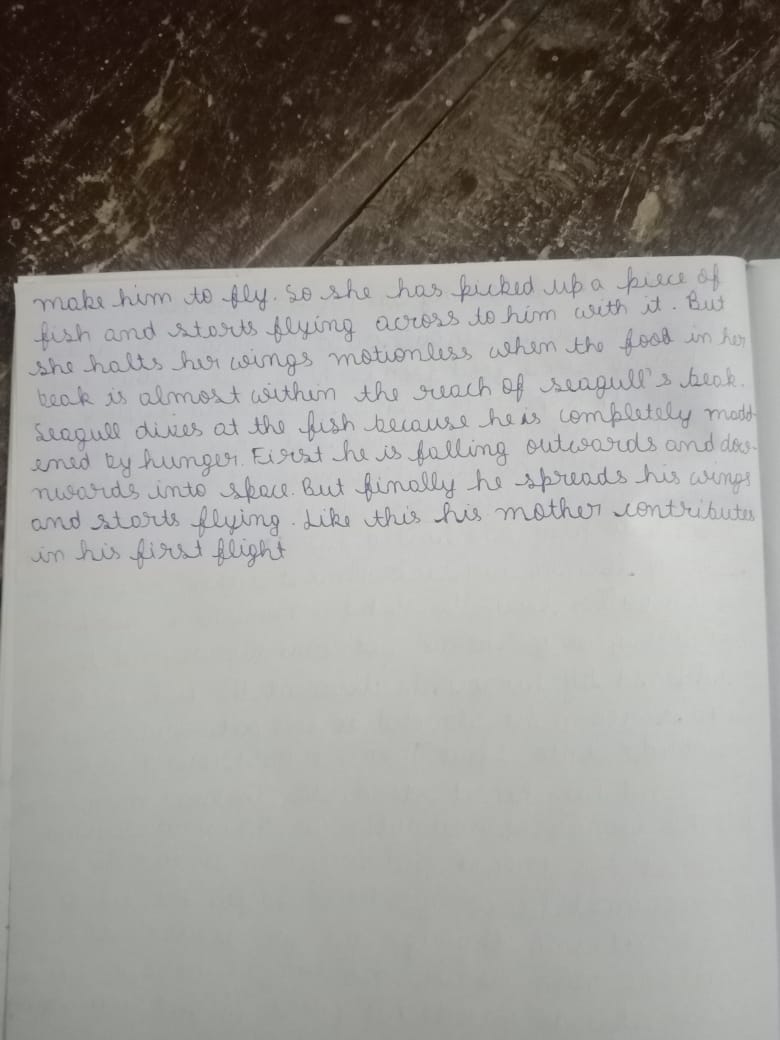 make him to fly. So she has picked up a piece of
fish and starts flying across to him with it. But
she halts her wings motionless when the food in her
beak is almost within the reach of seagull's beak.
Seagull dives at the fish because he is completely madd-
ened by hunger. First he is falling outwards and dow-
nwards into space. But finally he spreads his wings
and starts flying. Like this his mother contributes
in his first flight